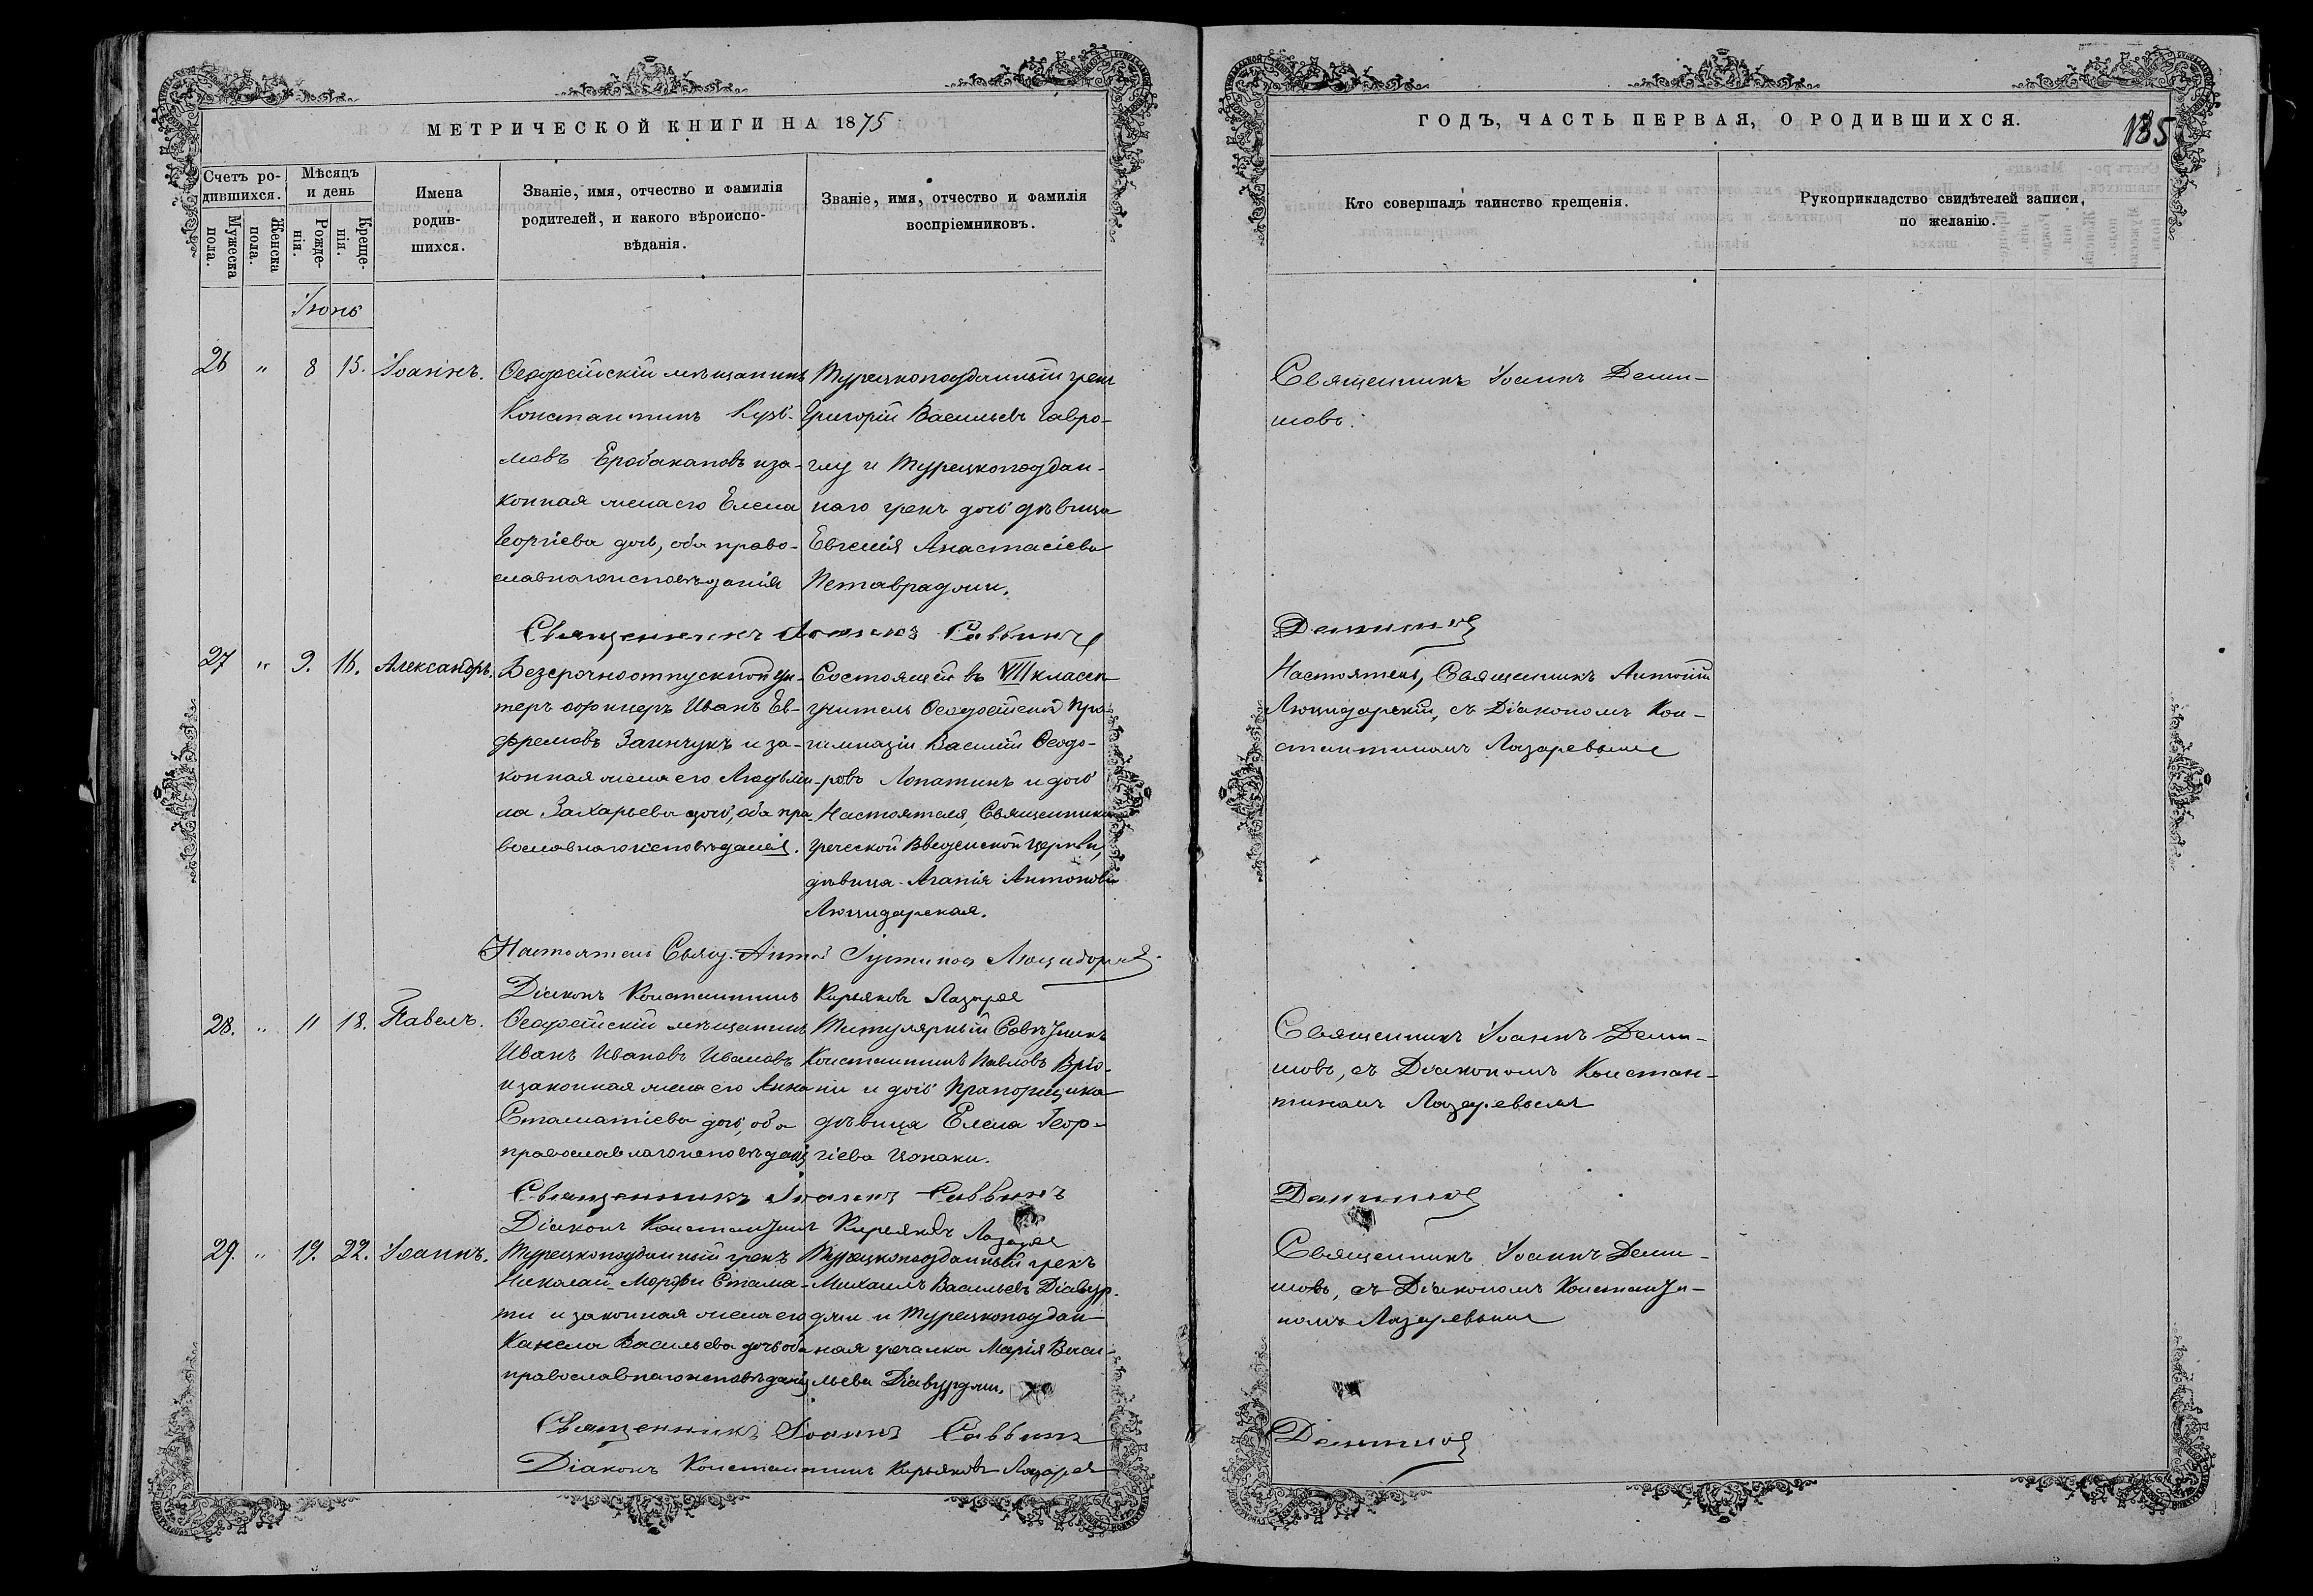 МЕТРИЧЕСКОЙ КНИГИ НА 1875
Счетъ ро-
дившихся.
Мужеска
пола.
Женска
пола.
Мѣсяцъ
и день
Рожде-
нія.
Креще-
нія.
Имена
родив-
шихся.
Званіе, имя, отчество и фамилія
родителей, и какого вѣроиспо-
вѣданія.
Званіе, имя, отчество и фамилія
воспріемниковъ.
Іюнь
26 " 8 15. Іоаннъ.
Ѳеодосійскій мѣщанинъ
Константинъ Кузь-
мовъ и за-
конная жена его Елена
Георгіева дочь, оба право-
славнаго исповѣданія
Турецкоподданный грекъ
Григорій Васильевъ Гавро-
глу и Турецкоподдан-
наго грека дочь дѣвица
Евгенія Анастасіева
Священникъ Іоаннъ Саввинъ
27 " 9. 16. Александръ.
Безсрочноотпускной ун-
теръ офицеръ Иванъ Ев-
фремовъ Заинчукъ и за-
конная жена его Людми-
ла Захарьева дочь, оба пра-
вославнаго исповѣданія.
Состоящій въ VIII классѣ
учитель Ѳеодосійской Про-
гимназіи Василій Ѳеодо-
ровъ Лопатинъ и дочь
Настоятеля, Священника
греческой Введенской церкви,
дѣвица Агапія Антонова
Люцидарская.
Настоятель Свящ. Антоній
Діаконъ Константинъ Кирьяковъ Лазаревъ
28. " 11 18. Павелъ.
Ѳеодосійскій мѣщанинъ
Иванъ Ивановъ Ивановъ
и законная жена его Анна
Стаматіева дочь, оба
православнаго исповѣданія
Титулярный Совѣтникъ
Константинъ Павловъ Вріо-
ни и дочь Прапорщика
дѣвица Елена Геор-
гіева Цонаки.
Священникъ Іоаннъ Саввинъ
Діаконъ Константинъ Кирьяковъ Лазаревъ
29. " 19. 22. Іоаннъ.
Турецкоподданный грекъ
Николай Морфи Стама-
ти и законная жена его
Канела Васильева дочь оба
православнаго исповѣданія
Турецкоподданный грекъ
Михаилъ Васильевъ Діавур-
дли и Турецкоподдан-
ная гречанка Марія Васи-
льева Діавурдли.
Священникъ Іоаннъ Саввинъ
Діаконъ Константинъ Кирьяковъ Лазаревъ
ГОДЪ, ЧАСТЬ ПЕРВАЯ, О РОДИВШИХСЯ.
135
Кто совершалъ таинство крещенія.
Рукоприкладство свидѣтелей записи,
по желанію.
Священникъ Іоаннъ Деми-
шовъ.
Настоятель, Священникъ Антоній
Люцидарскій, съ Діакономъ Кон-
стантиномъ Лазаревымъ
Священникъ Іоаннъ Деми-
шовъ, съ Діакономъ Констан-
тиномъ Лазаревымъ
Священникъ Іоаннъ Деми-
шовъ, съ Діакономъ Константи-
номъ Лазаревымъ